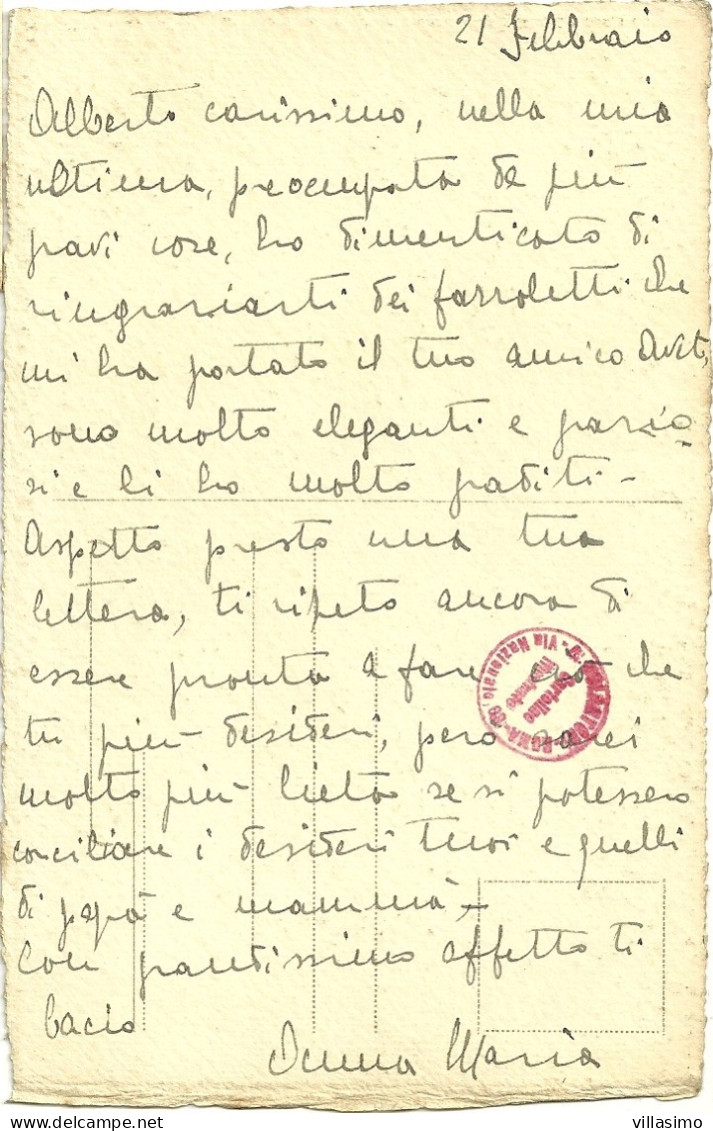 21 Febbraio
Alberto carissimo, nella mia
ultima, preoccupata da più
gravi cose, ho dimenticato di
ringraziarti dei fazzoletti che
mi ha portato il tuo amico
sono molto eleganti e grazio
si e li ho molto graditi -
Aspetto presto una tua
lettera, ti ripeto ancora di
essere pronta a fare ciò che
tu più desideri, però sarei
molto più lieta se si potessero
conciliare i desideri tuoi e quelli
di papà e mammà -
Con grandissimo affetto ti
bacio
Anna Maria
ROMA - Via Nazionale,
delcampe.net
villasimo